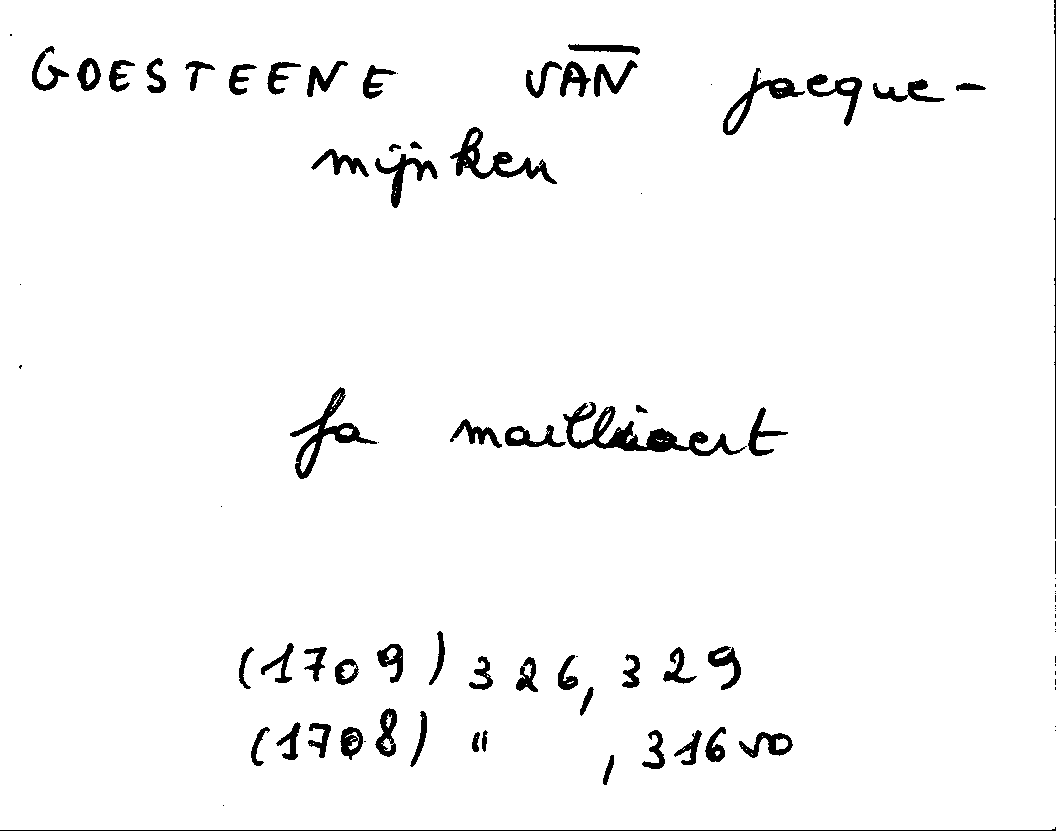 GOESTEENE VAN jacque-
mijnken
fa mailliaert
(1709) 326, 329
(1708) " , 316 vo